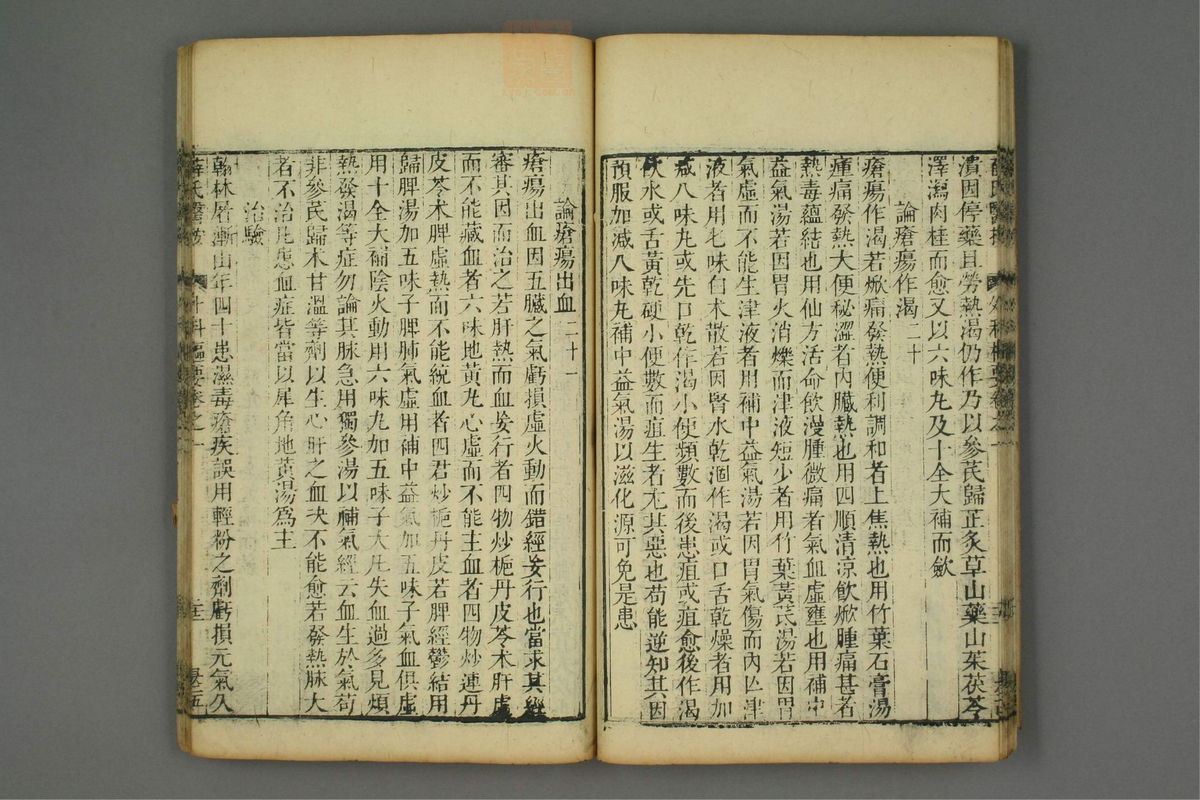 潰因停藥且勞熱渴仍作乃以參芪歸芷炙草山藥山茱茯苓
澤瀉肉桂而愈又以六味丸及十全大補而歛
論瘡瘍作渴二十
瘡瘍作渴若焮痛發熱便利調和者上焦熱也用竹葉石膏湯
腫痛發熱大便秘澀者內臟熱也用四順清涼飲焮腫痛甚者
熱毒蘊結也用仙方活命飲漫腫微痛者氣血虛壅也用補中
益氣湯若因胃火消爍而津液短少者用竹葉黃芪湯若因胃
氣虛而不能生津液者用補中益氣湯若因胃氣傷而內亡津
液者用七味白术散若因腎水乾涸作渴或口舌乾燥者用加
减八味丸或先口乾作渴小便頻數而後患疽或疽愈後作渴
飲水或舌黃乾硬小便數而疽生者尤其惡也苟能逆知其因
預服加减八味丸補中益氣湯以滋化源可免是患
論瘡瘍出血二十一
瘡瘍出血因五臟之氣虧損虛火動而錯經妄行也當求其經
審其因而治之若肝熱而血妄行者四物炒梔丹皮苓术肝虛
而不能藏血者六味地黃丸心虛而不能主血者四物炒連丹
皮苓术脾虛熱而不能統血者四君炒梔丹皮若脾經鬱結用
歸脾湯加五味子脾肺氣虛用補中益氣加五味子氣血俱虛
用十全大補陰火動用六味丸加五味子大凡失血過多見煩
熱發渴等症勿論其脉急用獨參湯以補氣經云血生於氣苟
非參芪歸术甘溫等劑以生心肝之血决不能愈若發熱脉大
者不治凡患血症皆當以犀角地黃湯爲主
治驗
翰林屠漸山年四十患濕毒瘡疾誤用輕粉之劑虧損元氣久
薛氏醫按
外科樞要卷之一